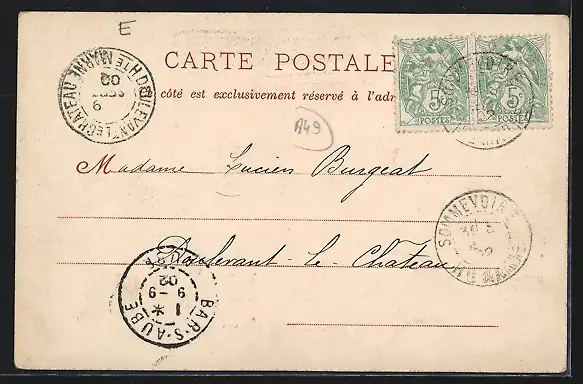 E
CARTE POSTALE
côté est exclusivement réservé à l'adr
5c
POSTES
5c
POSTES
DOULEVANT-LE-CHATEAU HTE MARNE
9
SEPT
02
A49
Madame Lucien Burgeat
SOMMEVOIRE
HTE MARNE
Doulevant-le-Château
BAR-S-AUBE
1 *
9-9
02